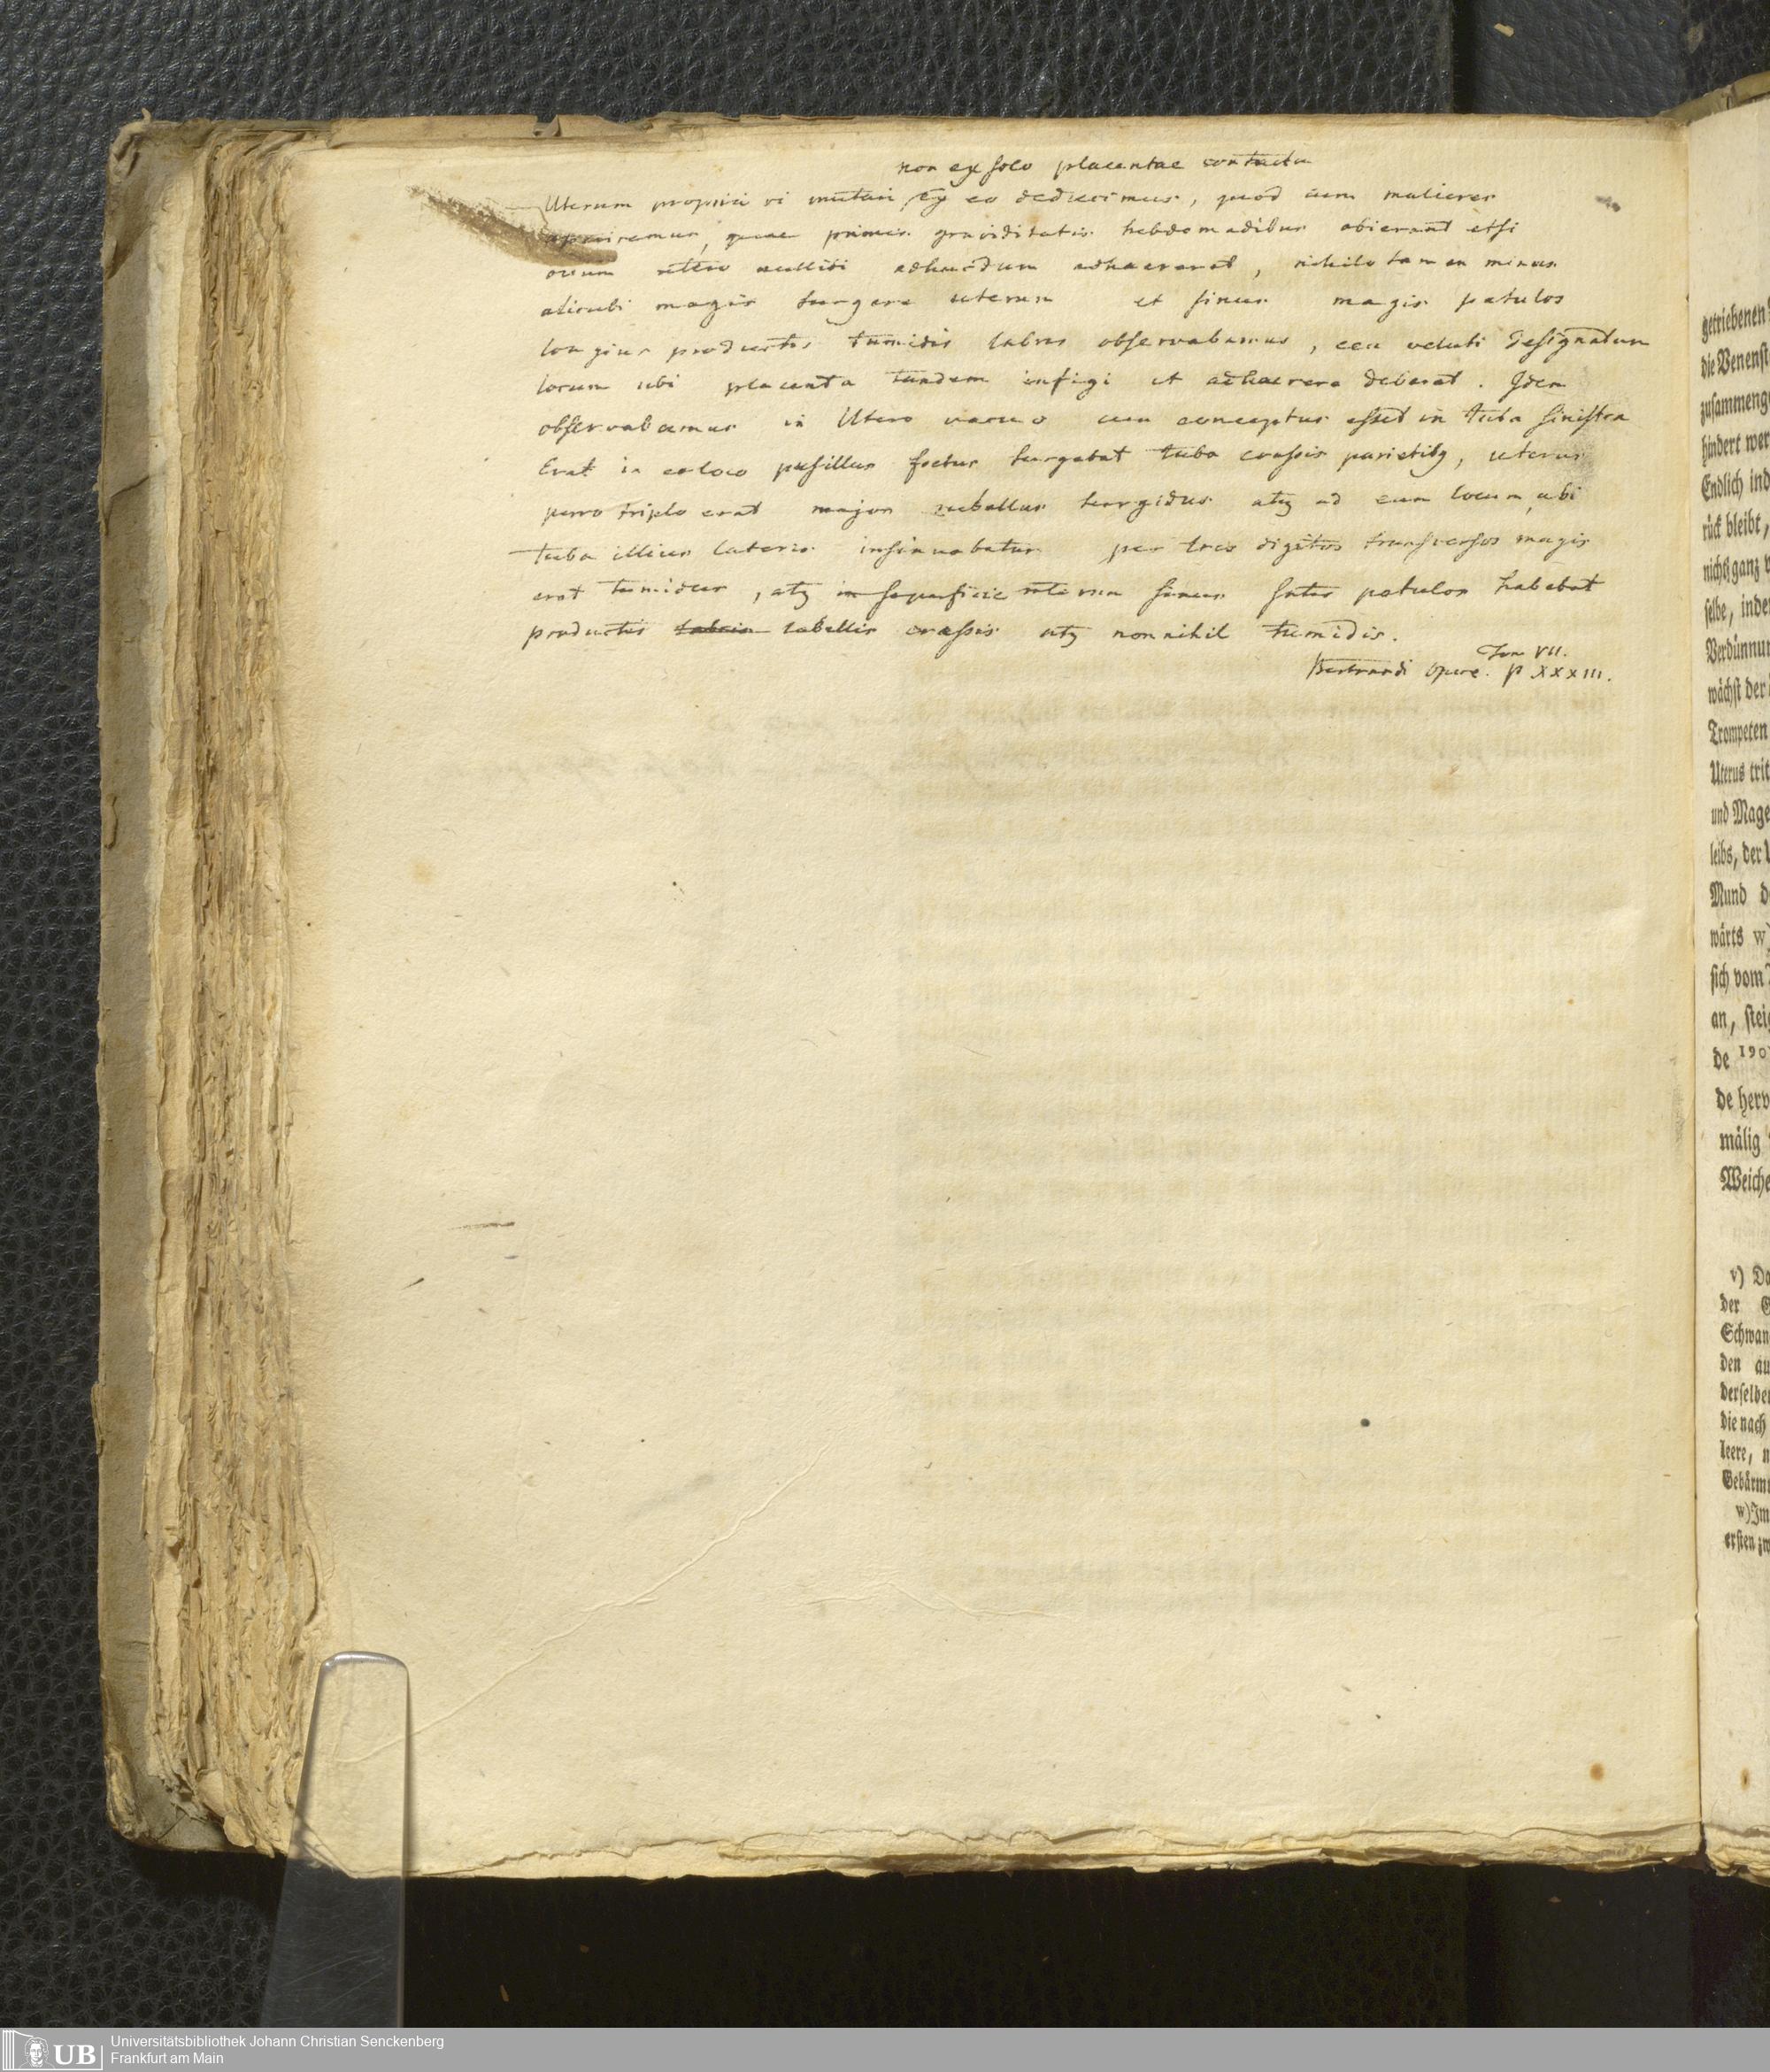 non ex solo placentae contactu
Uterum propria vi mutari, ex eo deducimus, quod cum mulieres
aperiremus, quae primis graviditatis hebdomadibus obierant etsi
ovum utero nullibi adhucdum adhaereret, nihilo tamen minus
alicubi magis turgere uterum et sinus magis patulos
longius productis tumidis labris observabamus, ceu veluti designatum
locum ubi placenta tandem infigi et adhaerere deberet. Idem
observabamus in Utero vacuo cum conceptus esset in tuba sinistra
Erat in eo loco pusillus foetus turgebat tuba crassis parietibq, uterus
porro triplo erat major rubellus turgidus atq ad eum locum, ubi
tuba illius lateris insinuabatur per tres digitos transversos magis
erat tumidus, atq in superficie interna sinus satis patulos habebat
productis labris labellis crassis atq nonnihil tumidis.
Tom VII.
Bertrandi Opere. p XXXIII.
getriebenen
die Venenst
zusammenge
hindert wer
Endlich ind
rück bleibt,
nichts ganz
selbe, inde
Verdünnun
wächst der
Trompeten
Uterus trit
und Mage
leibs, der
Mund d
wärts w)
sich vom
an, stei
de 190
de herv
mälig
Weiche
v) Da
der G
Schwan
den äu
derselbe
die nach
leere, n
Gebärm
w) Im
ersten zw
UB Universitätsbibliothek Johann Christian Senckenberg
Frankfurt am Main